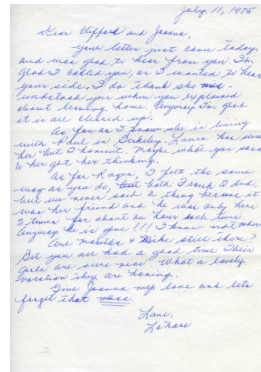 July 11, 1975
Dear Clifford and Joanna,
Your letter just came today
and was good to hear from you. I'm
glad I called you, as I wanted to hear
your side, I do think she mis-
understood you when you explained
about leaving home. Anyway I'm glad
it is all cleared up.
As far as I know she is living
with Phil in Berkeley. Laura has seen
her but I haven't. Maybe what you said
to her got her thinking.
As for Roger, I felt the same
way as you do, both I and
but we never said a thing because it
was her friend and he was only here
2 times for about an hour each time
Anyway he is gone!!! I know not where
Are & still there?
Bet you all had a good time. Their
girls are sure nice. What a lovely
vacation they are having.
Give Joanna my love and lets
forget that mess.
Love,